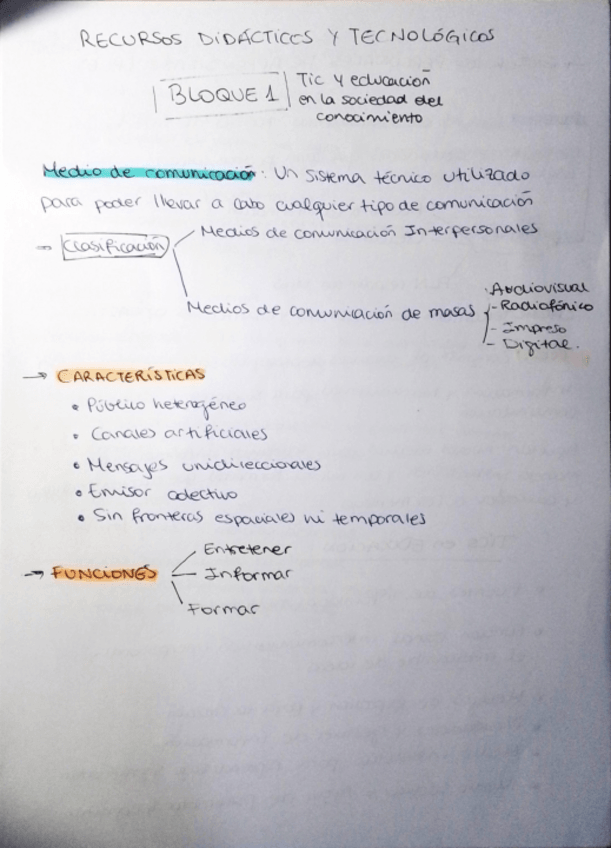 RECURSOS DIDÁCTICOS Y TECNOLÓGICOS
BLOQUE 1
Tic y educación
en la sociedad del
conocimiento
Medio de comunicación: Un sistema técnico utilizado
para poder llevar a cabo cualquier tipo de comunicación
→ Clasificación
Medios de comunicación Interpersonales
Medios de comunicación de masas
· Audiovisual
- Radiofónico
- Impreso
- Digital.
→ CARACTERÍSTICAS
• Público heterogéneo
• Canales artificiales
• Mensajes unidireccionales
• Emisor colectivo
• Sin fronteras espaciales ni temporales
→ FUNCIONES
Entretener
Informar
Formar